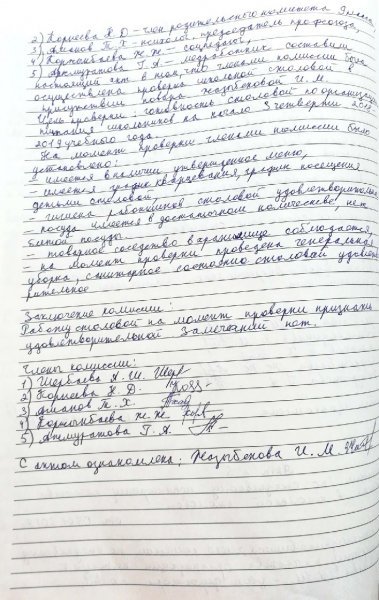 2) Корнеева Н. Д – член родительского комитета
3) Аманов Т. Х – психолог, председатель профсоюза,
4) Коржынбаева Ж. Ж. – соцпедагог,
5) Ажмуратова Г. А. – медработник составили
настоящий акт в том, что членами комиссии была
осуществлена проверка школьной столовой в
присутствии повара Жазыбековой И. М.
Цель проверки: готовность столовой по организации
питания школьников на начало 3 четверти 2018-
2019 учебного года.
На момент проверки членами комиссии было
установлено:
– имеется в наличии утвержденное меню,
– имеется график кварцевания, график посещения
детьми столовой,
– гигиена работников столовой удовлетворительная
– посуда имеется в достаточном количестве, нет
битой посуды.
– товарное соседство в хранилище соблюдается,
– на момент проверки проведена генеральная
уборка, санитарное состояние столовой удовлет-
рительное
Заключение комиссии:
Работу столовой на момент проверки признать
удовлетворительной Замечаний нет.
Члены комиссии:
1) Щербаева А. Ш.
2) Корнеева Н. Д.
3) Аманов Т. Х
4) Коржынбаева Ж. Ж.
5) Ажмуратова Г. А
С актом ознакомлена: Жазыбекова И. М.